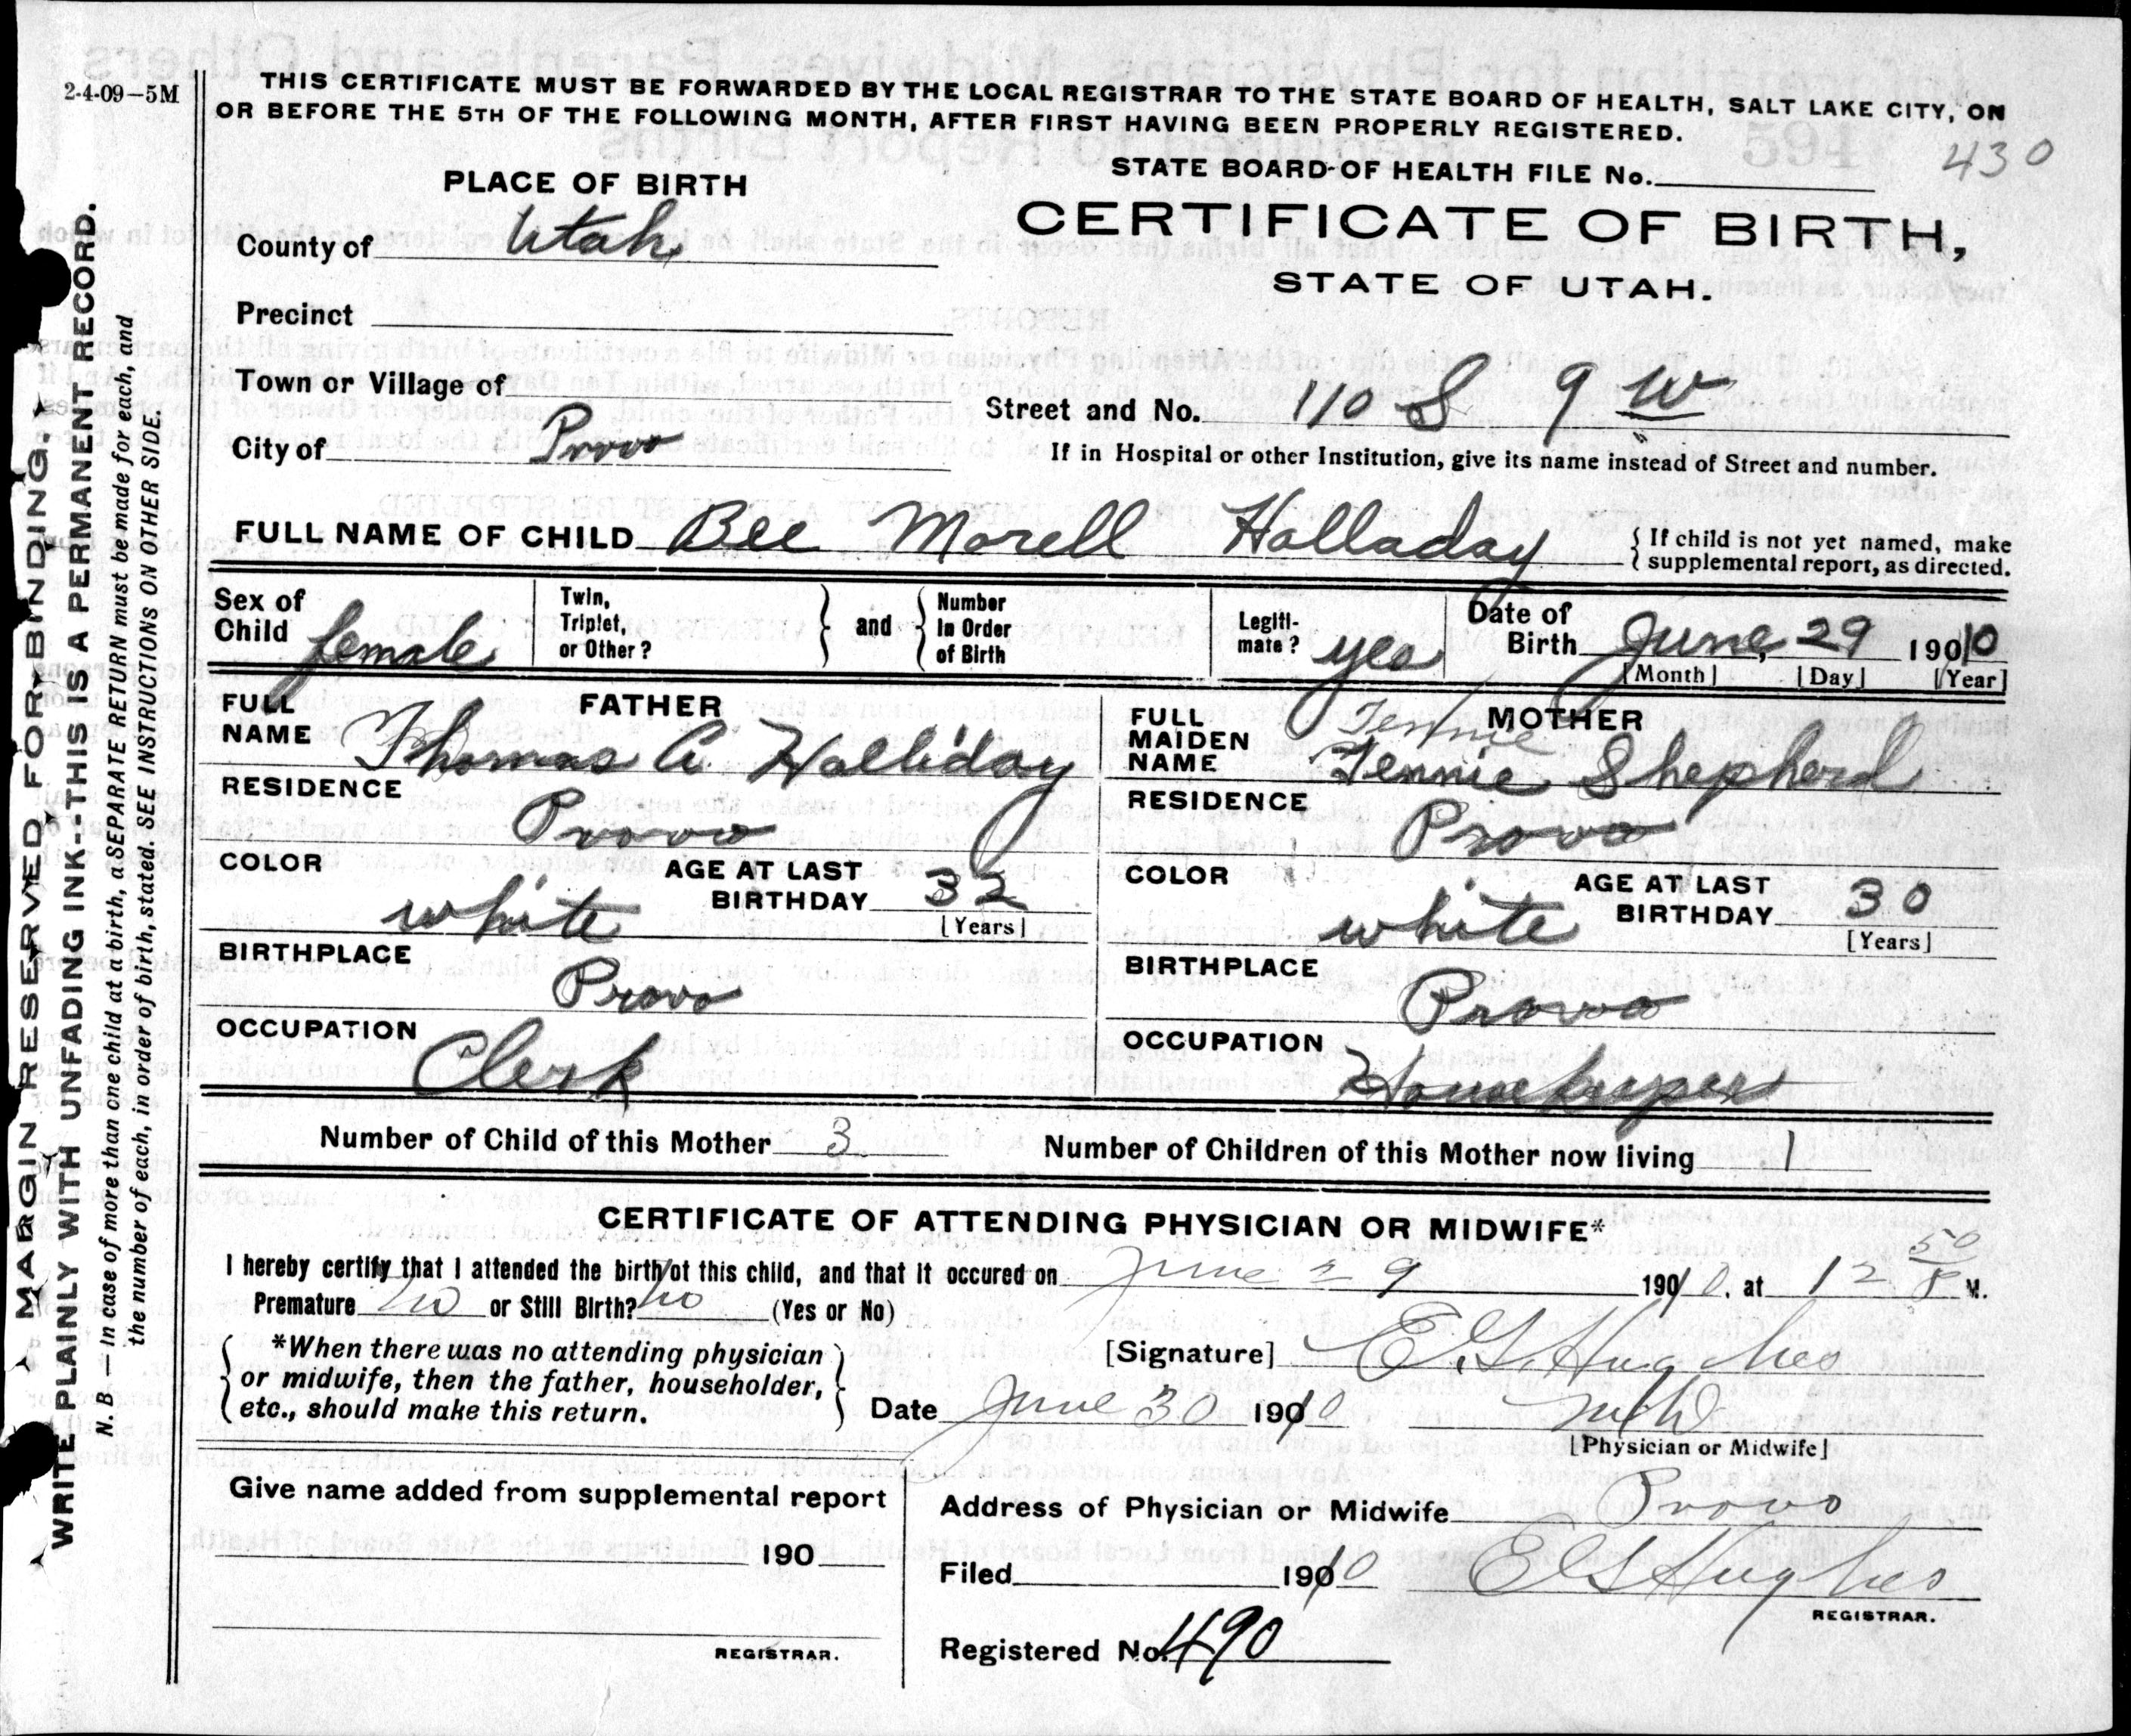 2-4-09-5M
THIS CERTIFICATE MUST BE FORWARDED BY THE LOCAL REGISTRAR TO THE STATE BOARD OF HEALTH, SALT LAKE CITY, ON
OR BEFORE THE 5TH OF THE FOLLOWING MONTH, AFTER FIRST HAVING BEEN PROPERLY REGISTERED.
STATE BOARD OF HEALTH FILE No. 430
PLACE OF BIRTH
CERTIFICATE OF BIRTH,
STATE OF UTAH.
County of Utah
Precinct
Town or Village of
Street and No. 110 S 9 W
City of Provo
If in Hospital or other Institution, give its name instead of Street and number.
FULL NAME OF CHILD Bee Morell Halladay
{ If child is not yet named, make
supplemental report, as directed.
Sex of Child female
Twin, Triplet, or Other?
and
Number In Order of Birth
Legiti-mate? yes
Date of Birth June 29 1910
[Month] [Day] [Year]
FATHER
FULL NAME Thomas A Halliday
RESIDENCE
Provo
COLOR white
AGE AT LAST BIRTHDAY 32
[Years]
BIRTHPLACE
Provo
OCCUPATION
Clerk
MOTHER
FULL MAIDEN NAME Jennie Jennie Shepherd
RESIDENCE
Provo
COLOR white
AGE AT LAST BIRTHDAY 30
[Years]
BIRTHPLACE
Provo
OCCUPATION
Housekeeper
Number of Child of this Mother 3 Number of Children of this Mother now living 1
CERTIFICATE OF ATTENDING PHYSICIAN OR MIDWIFE*
I hereby certify that I attended the birth of this child, and that it occured on June 29 1910, at 12 50 P M.
Premature No or Still Birth? No (Yes or No)
*When there was no attending physician
or midwife, then the father, householder,
etc., should make this return.
[Signature] E. G. Hughes
Date June 30 1910 M D
[Physician or Midwife]
Give name added from supplemental report
190
REGISTRAR.
Address of Physician or Midwife Provo
Filed 1910 E G Hughes
REGISTRAR.
Registered No. 490
MARGIN RESERVED FOR BINDING.
WRITE PLAINLY WITH UNFADING INK--THIS IS A PERMANENT RECORD.
N. B.—In case of more than one child at a birth, a SEPARATE RETURN must be made for each, and
the number of each, in order of birth, stated. SEE INSTRUCTIONS ON OTHER SIDE.